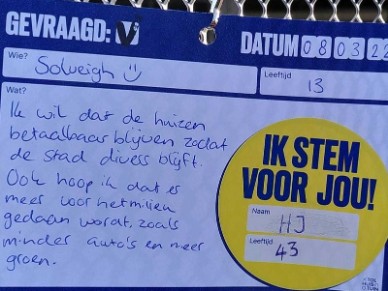 GEVRAAGD: V
DATUM 08 03 22
Wie?
Solveigh
Leeftijd
13
Wat?
Ik wil dat de huizen
betaalbaar blijven zodat
de stad divers blijft.
Ook hoop ik dat er
meer voor het milieu
gedaan wordt, zoals
minder auto's en meer
groen.
IK STEM
VOOR JOU!
Naam
HJ
Leeftijd
43